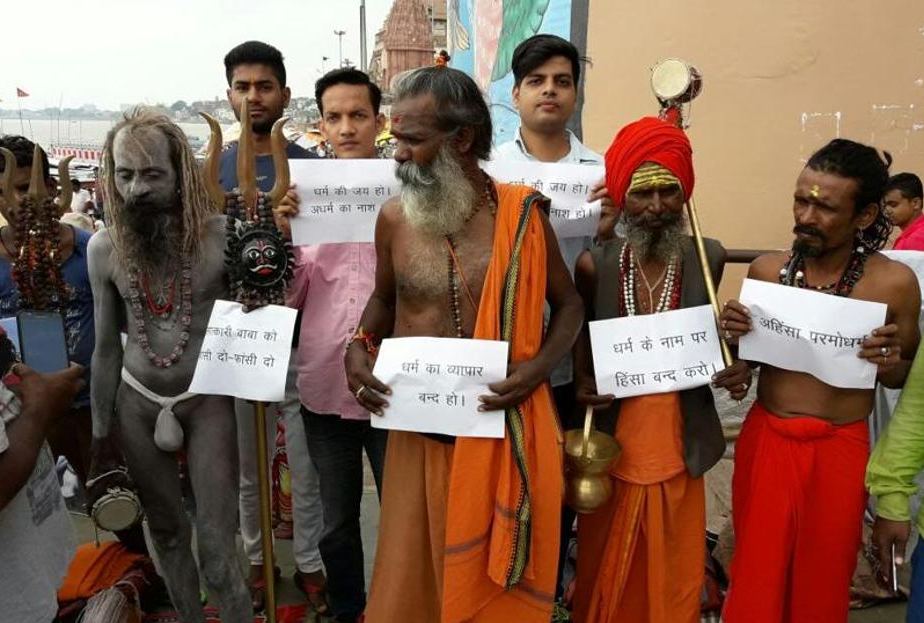 धर्म की जय हो।
अधर्म का नाश
धर्म की जय हो।
नाश हो।
बाबा को
दो-फांसी दो
धर्म का व्यापार
बन्द हो।
धर्म के नाम पर
हिंसा बन्द करो।
अहिंसा परमोधर्म